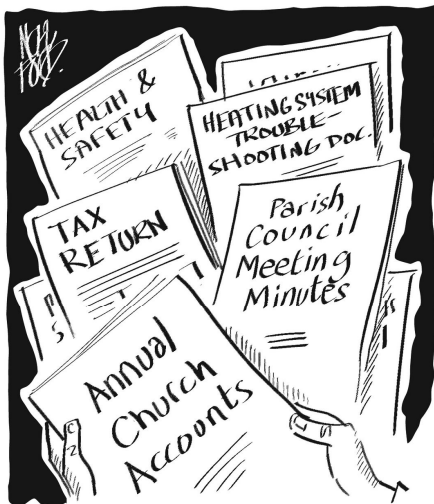 HEALTH &
SAFETY
HEATING SYSTEM
TROUBLE-
SHOOTING DOC.
TAX
RETURN
Parish
Council
Meeting
Minutes
Annual
Church
Accounts